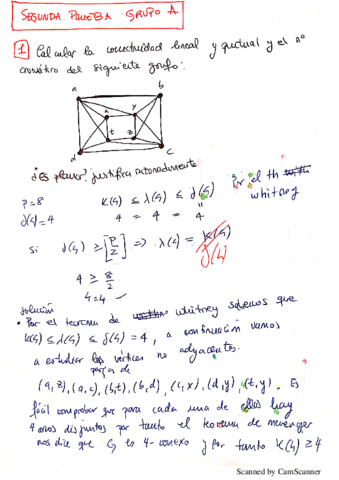 SEGUNDA PRUEBA GRUPO A
1 Calcular la conectividad lineal y puntual y el nº
cromático del siguiente grafo:
a b
x y
t z
d c
¿Es planar? justifica razonadamente
p=8 K(G) ≤ λ(G) ≤ δ(G) Por el th
δ(G)=4 4 = 4 = 4 whitney
si δ(G) ≥ [p/2] ⇒ λ(G) = K(G) δ(G)
4 ≥ 8/2
4=4 ✓
solución
• Por el teorema de whitney sabemos que
K(G) ≤ λ(G) ≤ δ(G) = 4, a continuación vamos
a estudiar los vértices no adyacentes.
parejas de
(a, z), (a, c), (b,t), (b,d), (c, x), (d, y), (t, y). Es
fácil comprobar que para cada una de ellas hay
4 arcos disjuntos por tanto el teorema de menenger
nos dice que G es 4-conexo y por tanto K(G) ≥ 4
Scanned by CamScanner